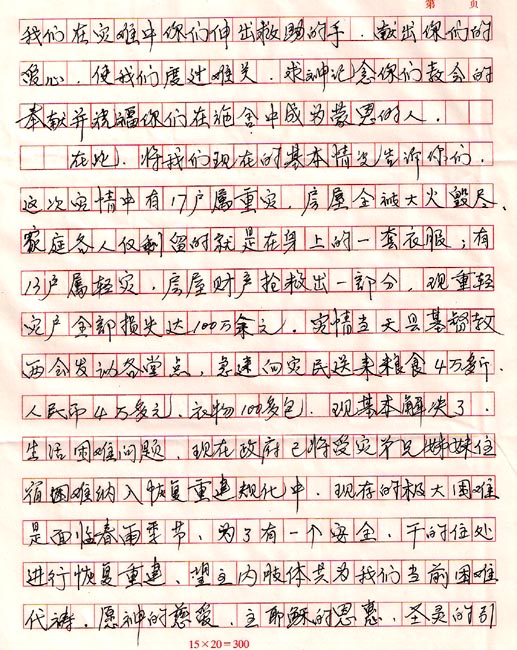 第 页
我们在灾难中你们伸出救助的手．献出你们的
爱心．使我们度过难关．求神记念你们教会的
奉献并祝福你们在施舍中成为蒙恩的人．
在此．将我们现在的基本情况告诉你们．
这次灾情中有17户属重灾．房屋全被大火毁尽、
家庭各人仅剩留的就是在身上的一套衣服；有
13户属轻灾．房屋财产抢救出一部分．现重轻
灾户全部损失达100万余元．灾情当天县基督教
两会发动各堂点，急速向灾民送来粮食4万多斤．
人民币4万多元．衣物100多包．现基本解决了．
生活困难问题．现在政府已将受灾弟兄姊妹住
宿困难纳入恢复重建规化中．现存的极大困难
是面临春雨季节．为了有一个安全．干的住处
进行恢复重建、望主内肢体共为我们当前困难
代祷．愿神的慈爱．主耶稣的恩惠．圣灵的引
15×20=300